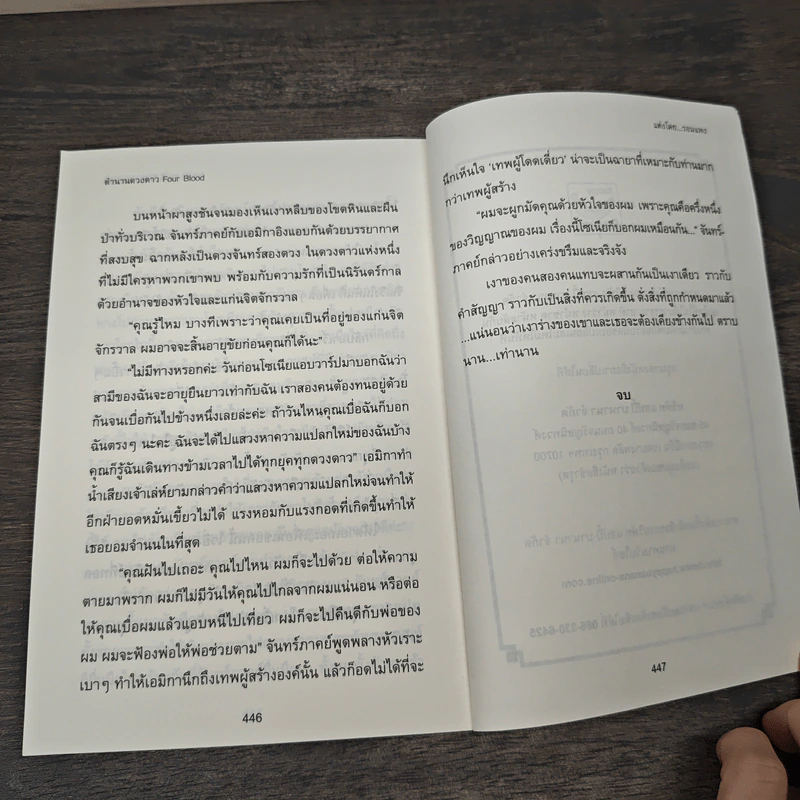 ตำนานดวงดาว Four Blood
บนหน้าผาสูงชันจนมองเห็นเงาหลืบของโขดหินและผืน
ป่าทั่วบริเวณ จันทร์ภาคย์กับเอมิกาอิงแอบกันด้วยบรรยากาศ
ที่สงบสุข ฉากหลังเป็นดวงจันทร์สองดวง ในดวงดาวแห่งหนึ่ง
ที่ไม่มีใครหาพวกเขาพบ พร้อมกับความรักที่เป็นนิรันดร์กาล
ด้วยอำนาจของหัวใจและแก่นจิตจักรวาล
“คุณรู้ไหม บางทีเพราะว่าคุณเคยเป็นที่อยู่ของแก่นจิต
จักรวาล ผมอาจจะสิ้นอายุขัยก่อนคุณก็ได้นะ”
“ไม่มีทางหรอกค่ะ วันก่อนโซเนียแอบวาร์ปมาบอกฉันว่า
สามีของฉันจะอายุยืนยาวเท่ากับฉัน เราสองคนต้องทนอยู่ด้วย
กันจนเบื่อกันไปข้างหนึ่งเลยล่ะค่ะ ถ้าวันไหนคุณเบื่อฉันก็บอก
ฉันตรงๆ นะคะ ฉันจะได้ไปแสวงหาความแปลกใหม่ของฉันบ้าง
คุณก็รู้ฉันเดินทางข้ามเวลาไปได้ทุกยุคทุกดวงดาว” เอมิกาทำ
น้ำเสียงเจ้าเล่ห์ยามกล่าวคำว่าแสวงหาความแปลกใหม่จนทำให้
อีกฝ่ายอดหมั่นเขี้ยวไม่ได้ แรงหอมกับแรงกอดที่เกิดขึ้นทำให้
เธอยอมจำนนในที่สุด
“คุณฝันไปเถอะ คุณไปไหน ผมก็จะไปด้วย ต่อให้ความ
ตายมาพราก ผมก็ไม่มีวันให้คุณไปไกลจากผมแน่นอน หรือต่อ
ให้คุณเบื่อผมแล้วแอบหนีไปเที่ยว ผมก็จะไปคืนดีกับพ่อของ
ผม ผมจะฟ้องพ่อให้พ่อช่วยตาม” จันทร์ภาคย์พูดพลางหัวเราะ
เบาๆ ทำให้เอมิกานึกถึงเทพผู้สร้างองค์นั้น แล้วก็อดไม่ได้ที่จะ
446
แต่งโดย...รอนแพง
นึกเห็นใจ ‘เทพผู้โดดเดี่ยว’ น่าจะเป็นฉายาที่เหมาะกับท่านมาก
กว่าเทพผู้สร้าง
“ผมจะผูกมัดคุณด้วยหัวใจของผม เพราะคุณคือครึ่งหนึ่ง
ของวิญญาณของผม เรื่องนี้โซเนียก็บอกผมเหมือนกัน...” จันทร์-
ภาคย์กล่าวอย่างเคร่งขรึมและจริงจัง
เงาของคนสองคนแทบจะผสานกันเป็นเงาเดียว ราวกับ
คำสัญญา ราวกับเป็นสิ่งที่ควรเกิดขึ้น ดั่งสิ่งที่ถูกกำหนดมาแล้ว
...แน่นอนว่าเงาร่างของเขาและเธอจะต้องเคียงข้างกันไป ตราบ
นาน...เท่านาน
จบ
447